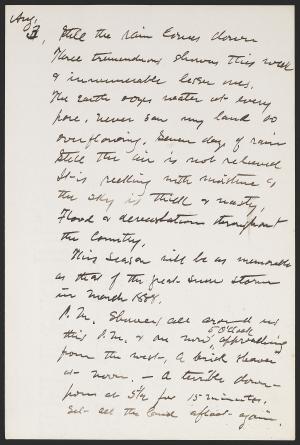 Aug.
1, Still the rain comes down
Three tremendous showers this week
& innumerable lesser ones.
The earth oozes water at every
pore, never saw my land so
overflowing. Seven days of rain
Still the air is not relieved
It is reeking with moisture &
the sky is thick & nasty,
Flood & devastation throughout
the Country.
This season will be as memorable
as that of the great snow storm
in March 1888.
P.M. Showers all around us
this P.M. & one now, 5 o'clock approaching
from the west, A brisk shower
at noon. — A terrible down-
pour at 5½ for 15 minutes.
Set all the land afloat again.